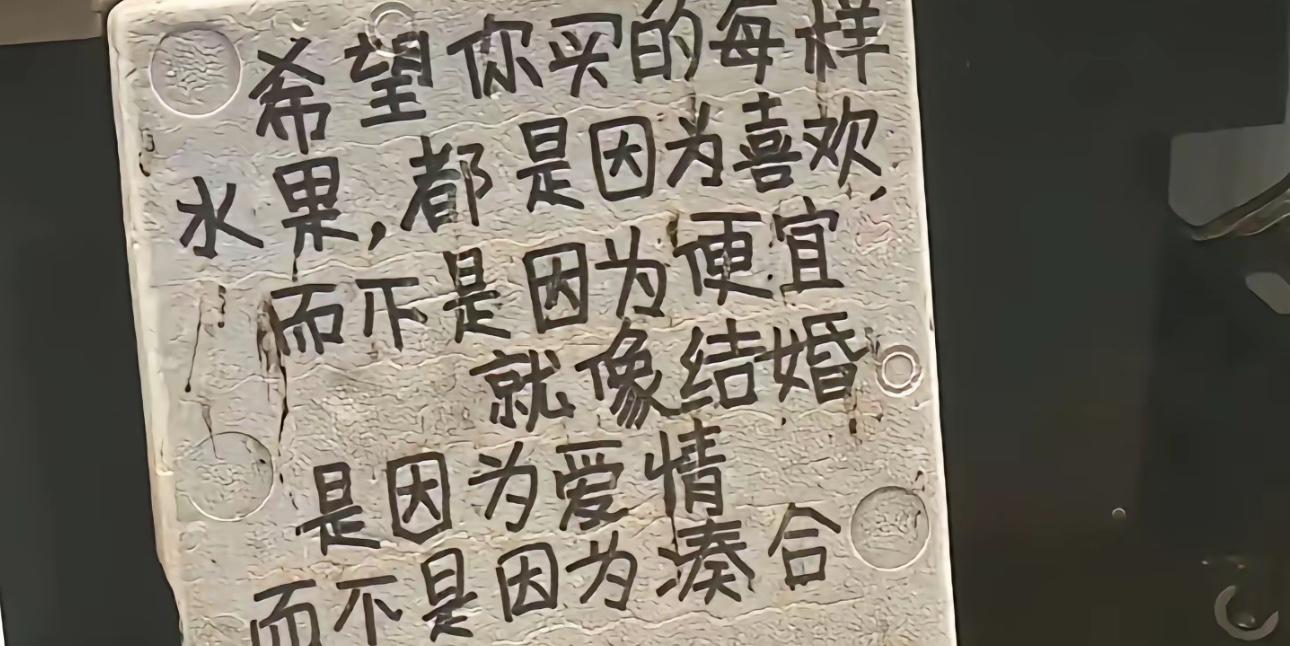 希望你买的每样
水果,都是因为喜欢,
而不是因为便宜
就像结婚
是因为爱情
而不是因为凑合